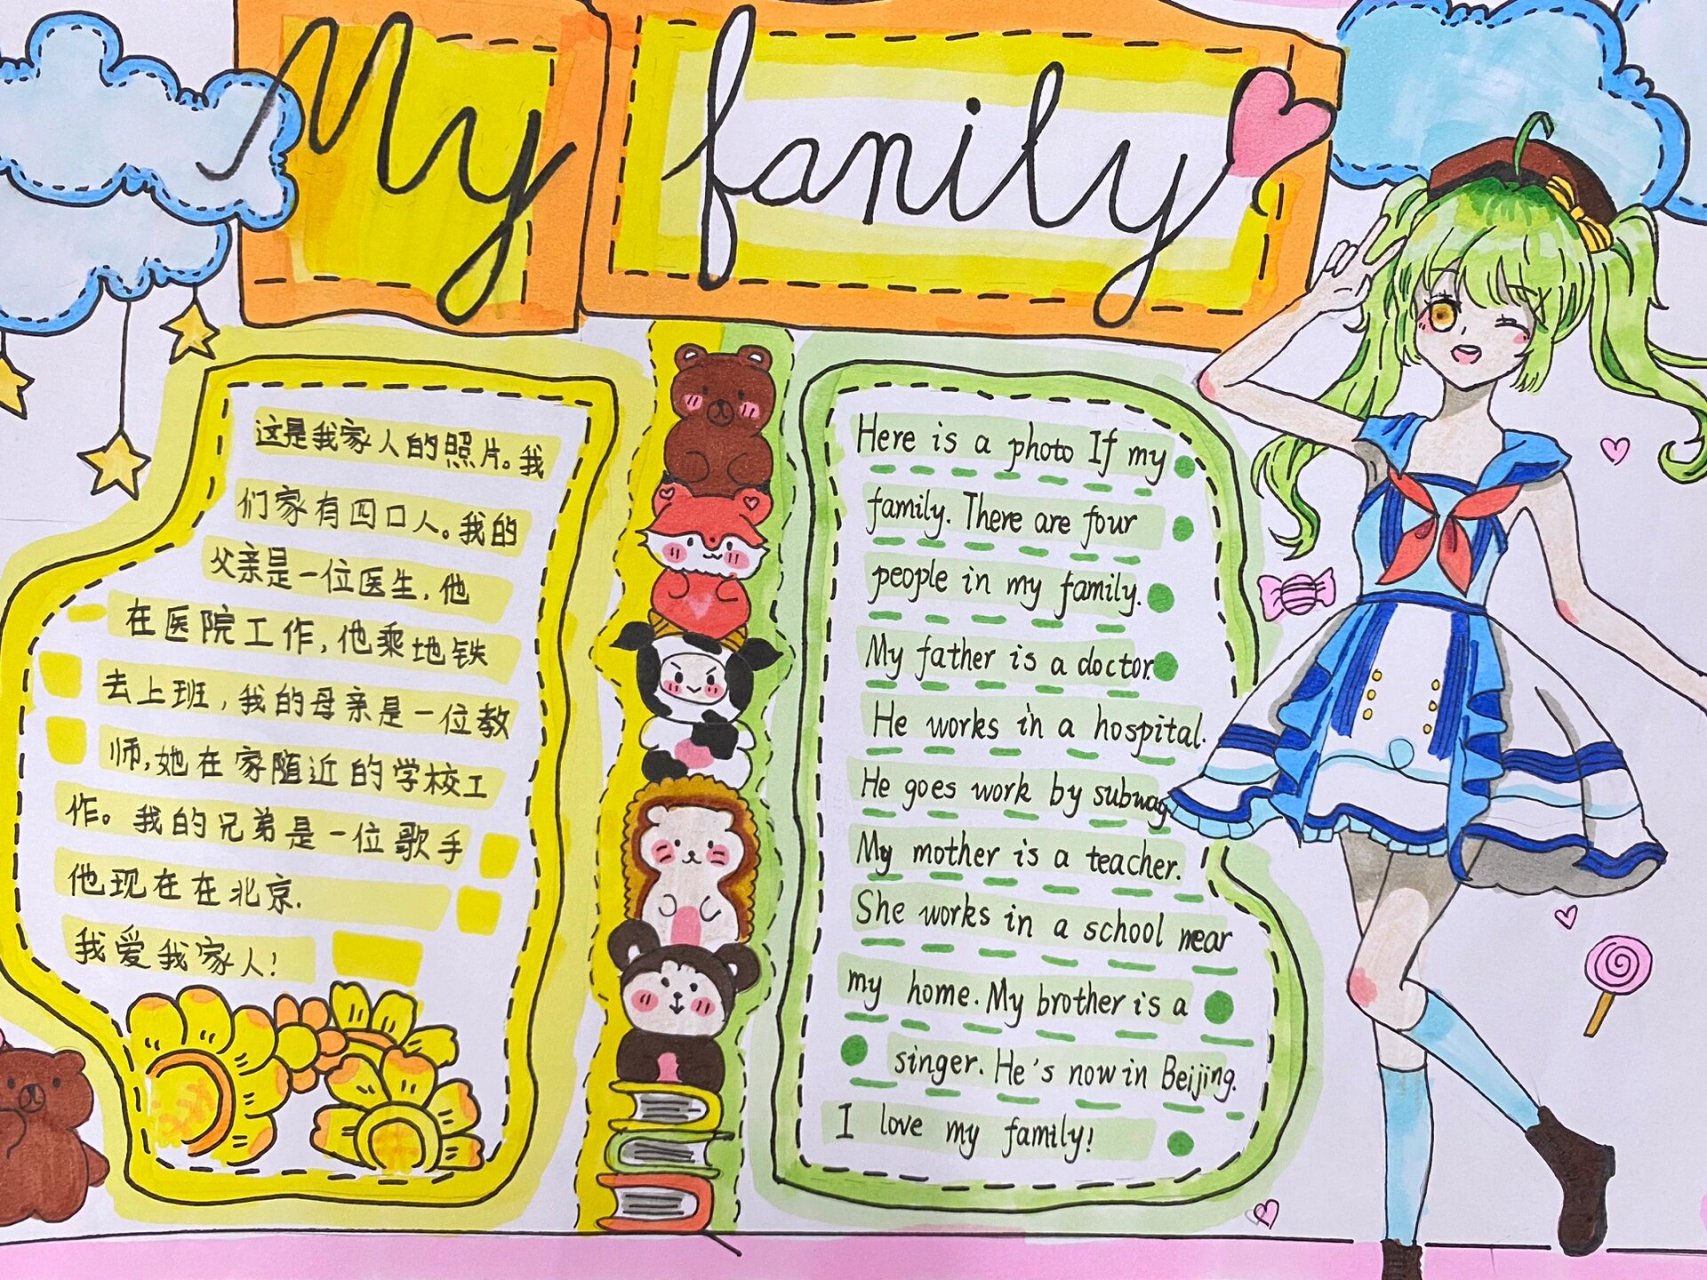 My fanily
这是我家人的照片。我
们家有四口人。我的
父亲是一位医生.他
在医院工作,他乘地铁
去上班,我的母亲是一位教
师,她在家随近的学校工
作。我的兄弟是一位歌手
他现在在北京.
我爱我家人!
Here is a photo If my
family. There are four
people in my family.
My father is a doctor.
He works in a hospital.
He goes work by subway
My mother is a teacher.
She works in a school near
my home. My brother is a
singer. He's now in Beijing.
I love my family!